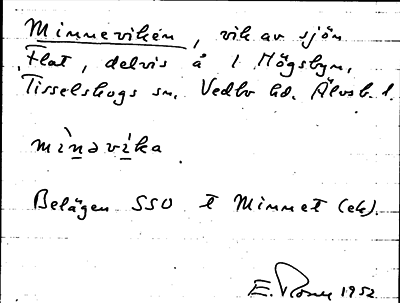 Minneviken, vik av sjön
Flat, delvis å 1 Högsbyn,
Tisselskogs sn. Vedbo hd. Älvsb. l.
mìnəvika
Belägen SSO t Minnet (ek).
E. 1952